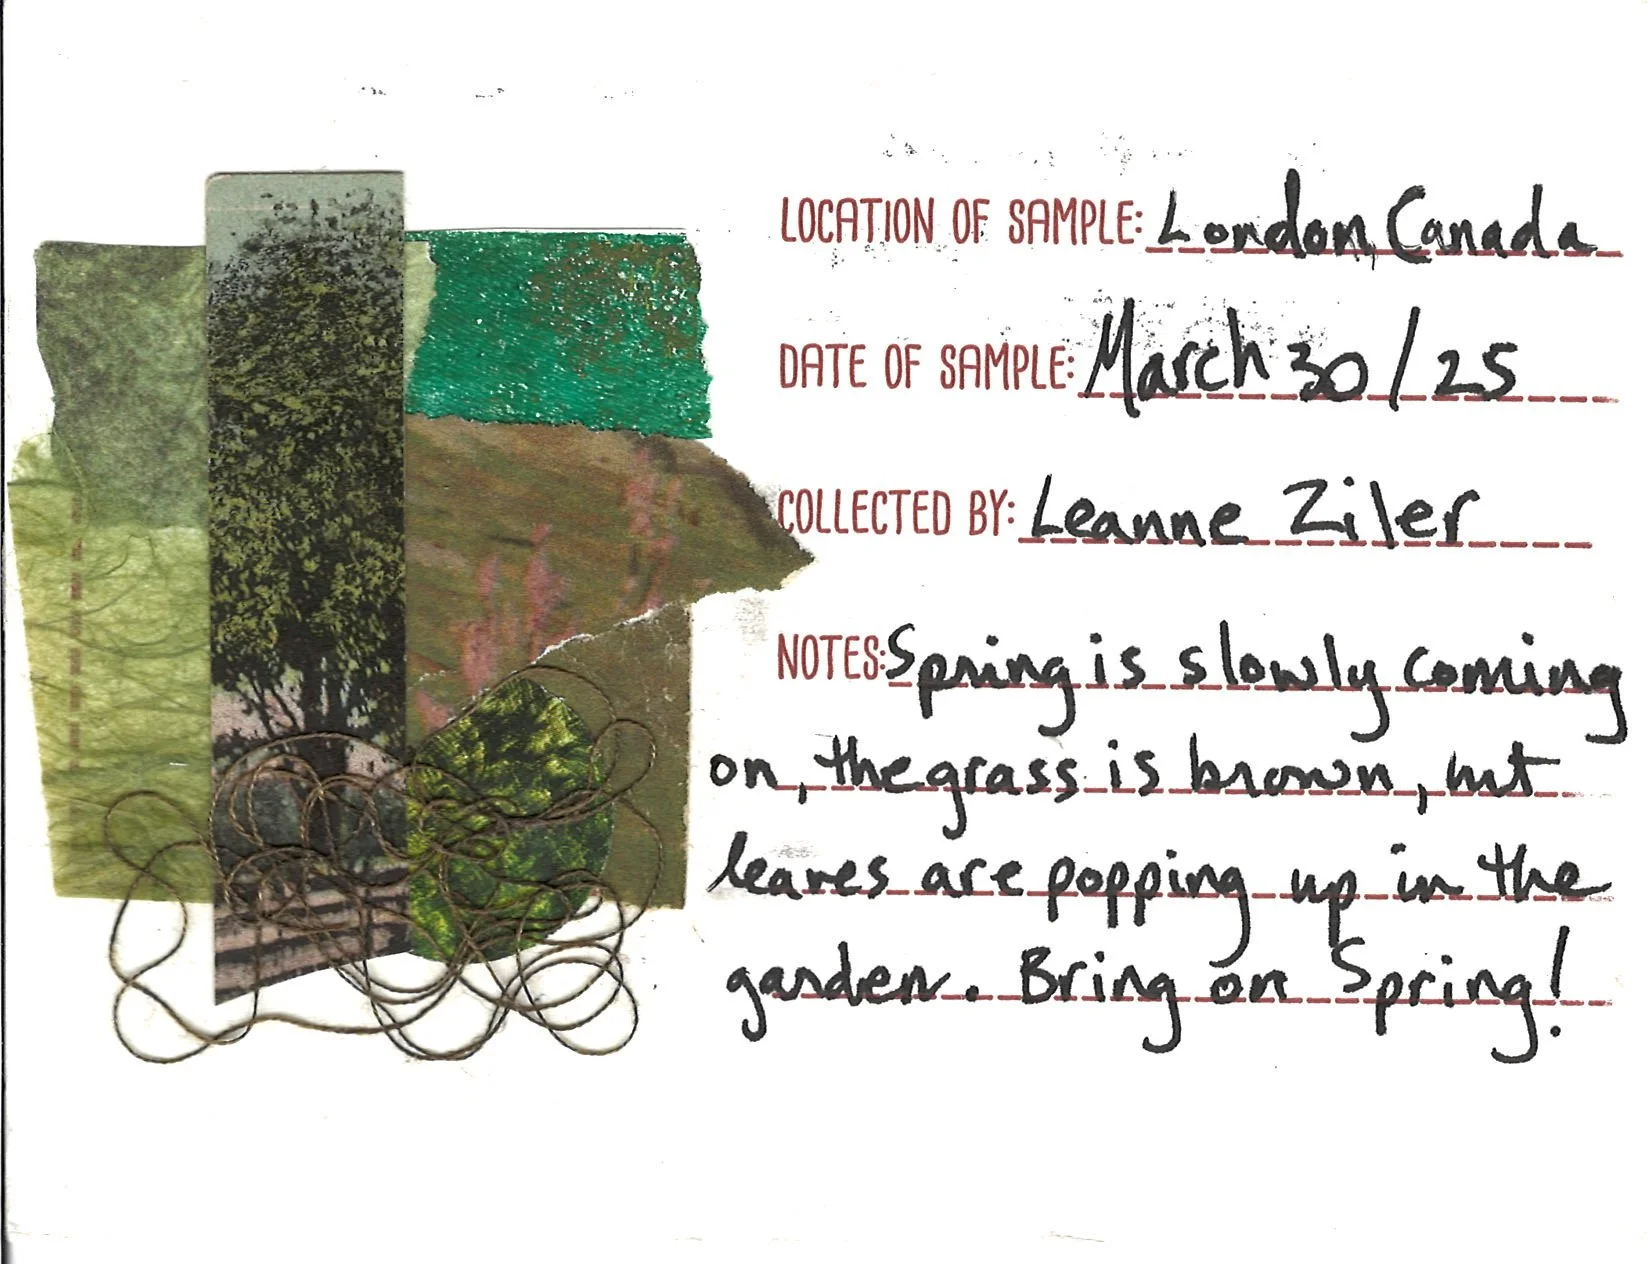 LOCATION OF SAMPLE: London, Canada
DATE OF SAMPLE: March 30/25
COLLECTED BY: Leanne Ziler
NOTES: Spring is slowly coming
on, the grass is brown, but
leaves are popping up in the
garden. Bring on Spring!